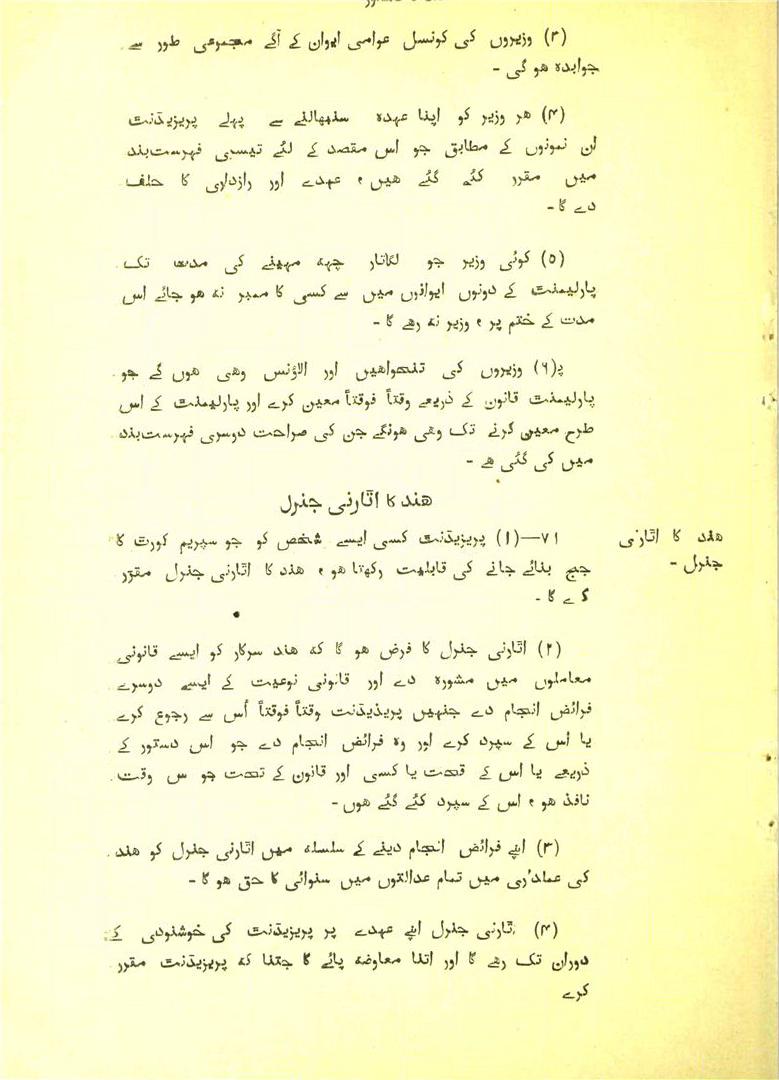 (۳) وزیروں کی کونسل عوامی ایوان کے آگے مجموعی طور سے
جوابدہ ھو گی -
(۴) ھر وزیر کو اپنا عہدہ سنبھالنے سے پہلے پریزیڈنٹ
ان نمونوں کے مطابق جو اس مقصد کے لئے تیسری فہرست بند
میں مقرر کئے گئے ھیں ، عہدے اور رازداری کا حلف
دے گا -
(۵) کوئی وزیر جو لگاتار چھہ مہینے کی مدت تک
پارلیمنٹ کے دونوں ایوانوں میں سے کسی کا ممبر نہ ھو جائے اس
مدت کے ختم پر ، وزیر نہ رھے گا -
(۶) وزیروں کی تنخواھیں اور الاؤنس وھی ھوں گے جو
پارلیمنٹ قانون کے ذریعے وقتاً فوقتاً معین کرے اور پارلیمنٹ کے اس
طرح معین کرنے تک وھی ھونگے جن کی صراحت دوسری فہرست بند
میں کی گئی ھے -
ھند کا اٹارنی جنرل
ھند کا اٹارنی
جنرل -
۷۱—(۱) پریزیڈنٹ کسی ایسے شخص کو جو سپریم کورٹ کا
جج بنائے جانے کی قابلیت رکھتا ھو ، ھند کا اٹارنی جنرل مقرر
کرے گا -
(۲) اٹارنی جنرل کا فرض ھو گا کہ ھند سرکار کو ایسے قانونی
معاملوں میں مشورہ دے اور قانونی نوعیت کے ایسے دوسرے
فرائض انجام دے جنہیں پریذیڈنٹ وقتاً فوقتاً اُس سے رجوع کرے
یا اُس کے سپرد کرے اور وہ فرائض انجام دے جو اس دستور کے
ذریعے یا اس کے تحت یا کسی اور قانون کے تحت جو اس وقت
نافذ ھو ، اس کے سپرد کئے گئے ھوں -
(۳) اپنے فرائض انجام دینے کے سلسلہ میں اٹارنی جنرل کو ھند
کی عملداری میں تمام عدالتوں میں سنوائی کا حق ھو گا -
(۴) اٹارنی جنرل اپنے عہدے پر پریزیڈنٹ کی خوشنودی کے
دوران تک رھے گا اور اتنا معاوضہ پائے گا جتنا کہ پریزیڈنٹ مقرر
کرے